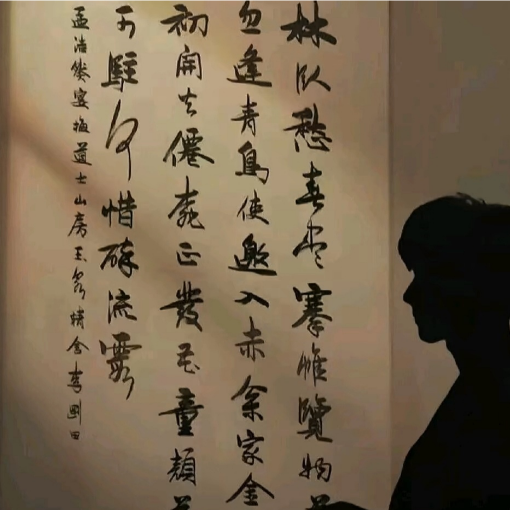 林臥愁春尽搴帷覽物
忽逢青鳥使邀入赤枩家金
初開火僊桃正發花童顏
可駐何惜醉流霞
孟浩然宴梅道士山房玉泉精舍李剛田